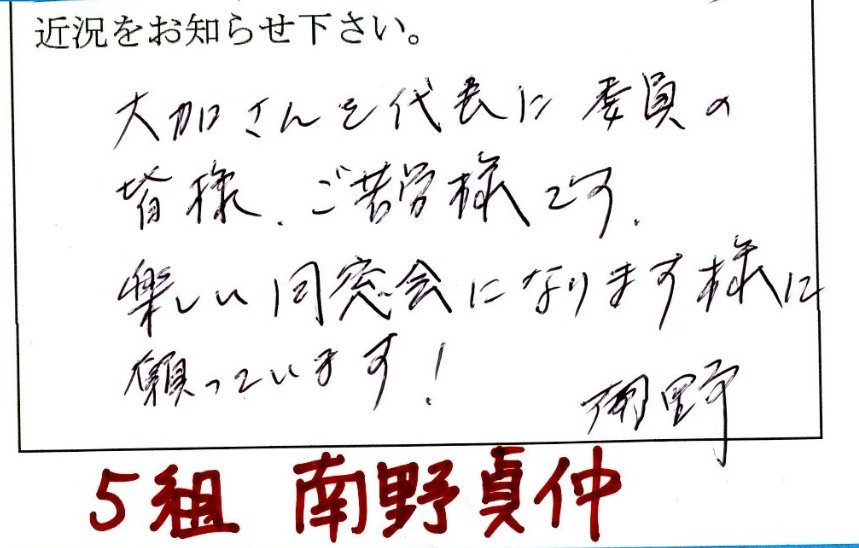 近況をお知らせ下さい。
大加さんを代表に委員の
皆様、ご苦労様です、
楽しい同窓会になります様に
願っています!
南野
5組 南野貞仲